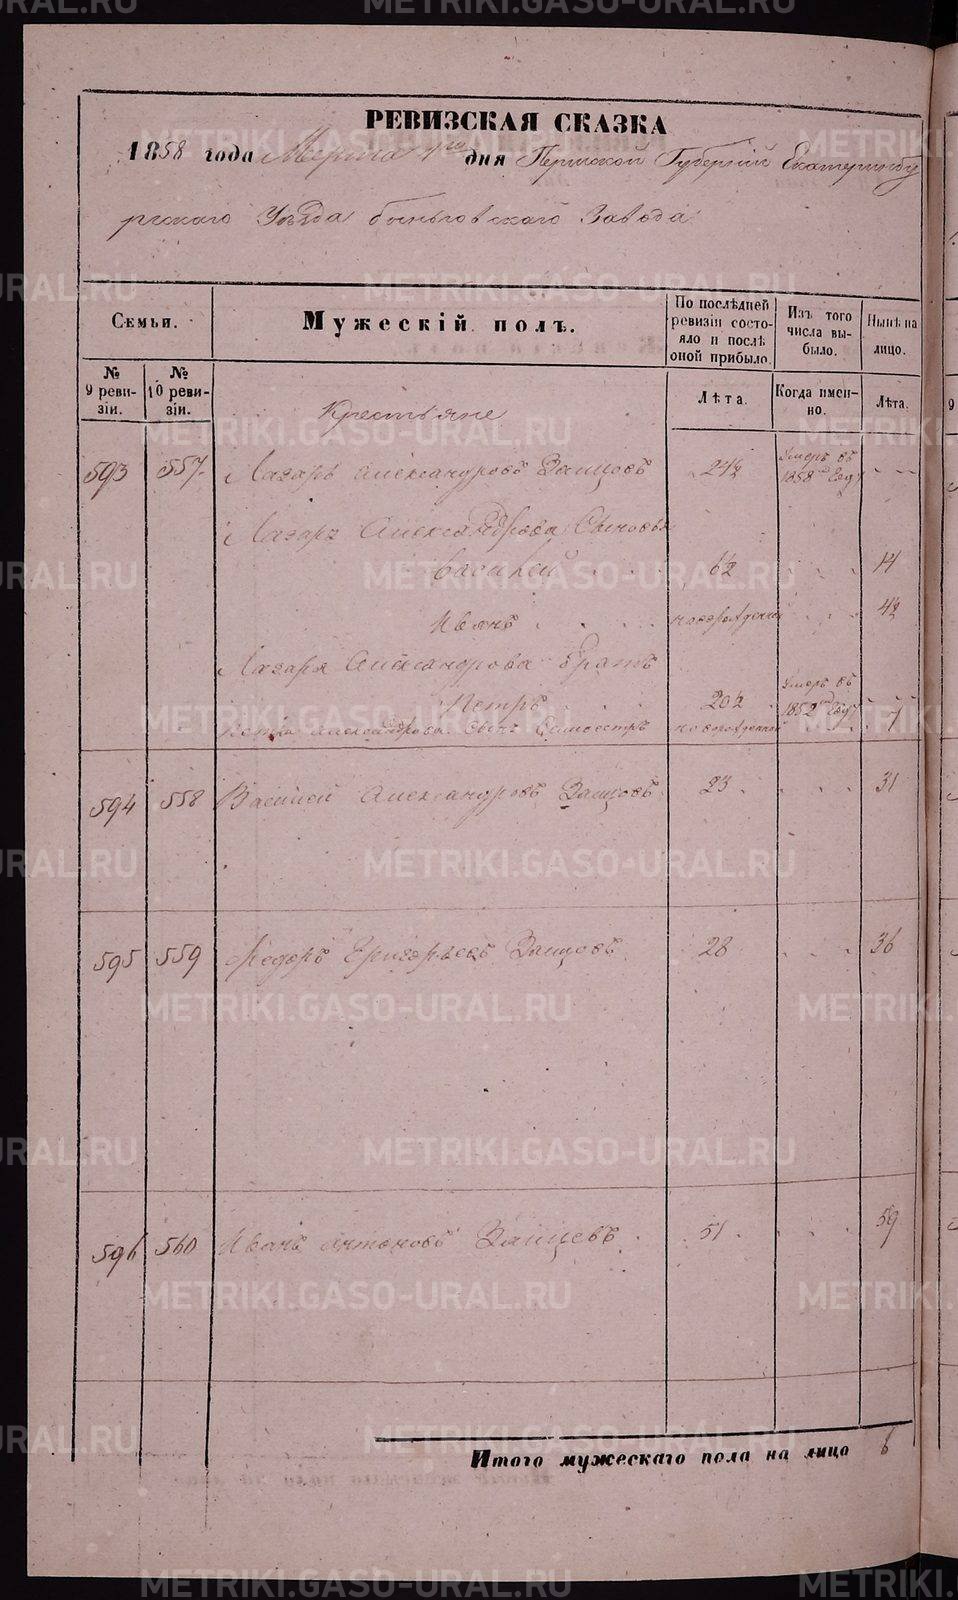 METRIKI.GASO-URAL.RU
РЕВИЗСКАЯ СКАЗКА
1858 года Марта 1го дня Пермской Губернии Екатеринбу
ргскаго Уѣзда Быньговскаго Завода
Семьи.
Мужескій полъ.
По послѣдней ревизіи состояло и послѣ оной прибыло.
Изъ того числа выбыло.
Нынѣ на лицо.
№ 9 ревизіи.
№ 10 ревизіи.
Лѣта.
Когда именно.
Лѣта.
Крестьяне
593 557 Лазарь Александровъ Заицовъ 24½ Умеръ въ 1858м Году
Лазаря Александрова Сыновья
Василей 6½ 14
Иванъ новорожденной 4½
Лазаря Александрова братъ
Петръ 20½ Умеръ въ 1852мъ Году
Петра Александрова Сынъ новорожденной
594 558 Василей Александровъ Заицовъ 23 31
595 559 Федоръ Григорьевъ Заицовъ 28 36
596 560 Иванъ Антоновъ Заицевъ 51 59
Итого мужескаго пола на лицо 6